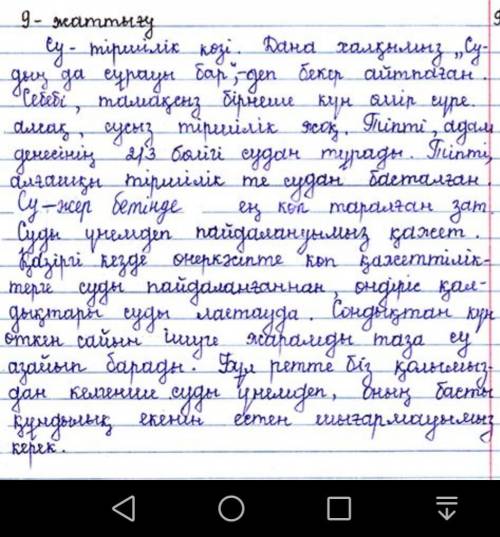 9- жаттығу
Су- тіршілік көзі. Дана халқымыз „Су-
дың да сұрауы бар",-деп бекер айтпаған.
Себебі, тамақсыз бірнеше күн өмір сүре
алмақ, сусыз тіршілік жоқ. Тіпті, адам
денесінің 2/3 бөлігі судан тұрады. Тіпті,
алғашқы тіршілік те судан басталған.
Су-жер бетінде ең көп таралған зат
Суды үнемдеп пайдалануымыз қажет.
Қазіргі кезде өнеркәсіпте көп қажеттілік-
терге суды пайдаланғаннан, өндіріс қал-
дықтары суды ластауда. Сондықтан күн
өткен сайын ішуге жарамды таза су
азайып барады. Бұл ретте біз қолымыз-
дан келгенше суды үнемдеп, оның басты
құндылық екенін естен шығармауымыз
керек.